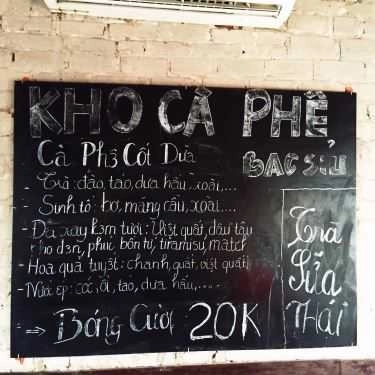 KHO CÀ PHÊ
Cà Phê Cốt Dừa
BẠC SỈU
- Trà: đào, táo, dưa hấu, xoài,...
- Sinh tố: bơ, mãng cầu, xoài,...
- Đá xay kem tươi: Việt quất, dâu tây
nho đen, phúc bồn tử, tiramisu, match
- Hoa quả tuyết: chanh, quất, việt quất
- Nước ép: cóc, ổi, táo, dưa hấu,....
⇒ Bóng Cười 20K
Trà
Sữa
THÁI